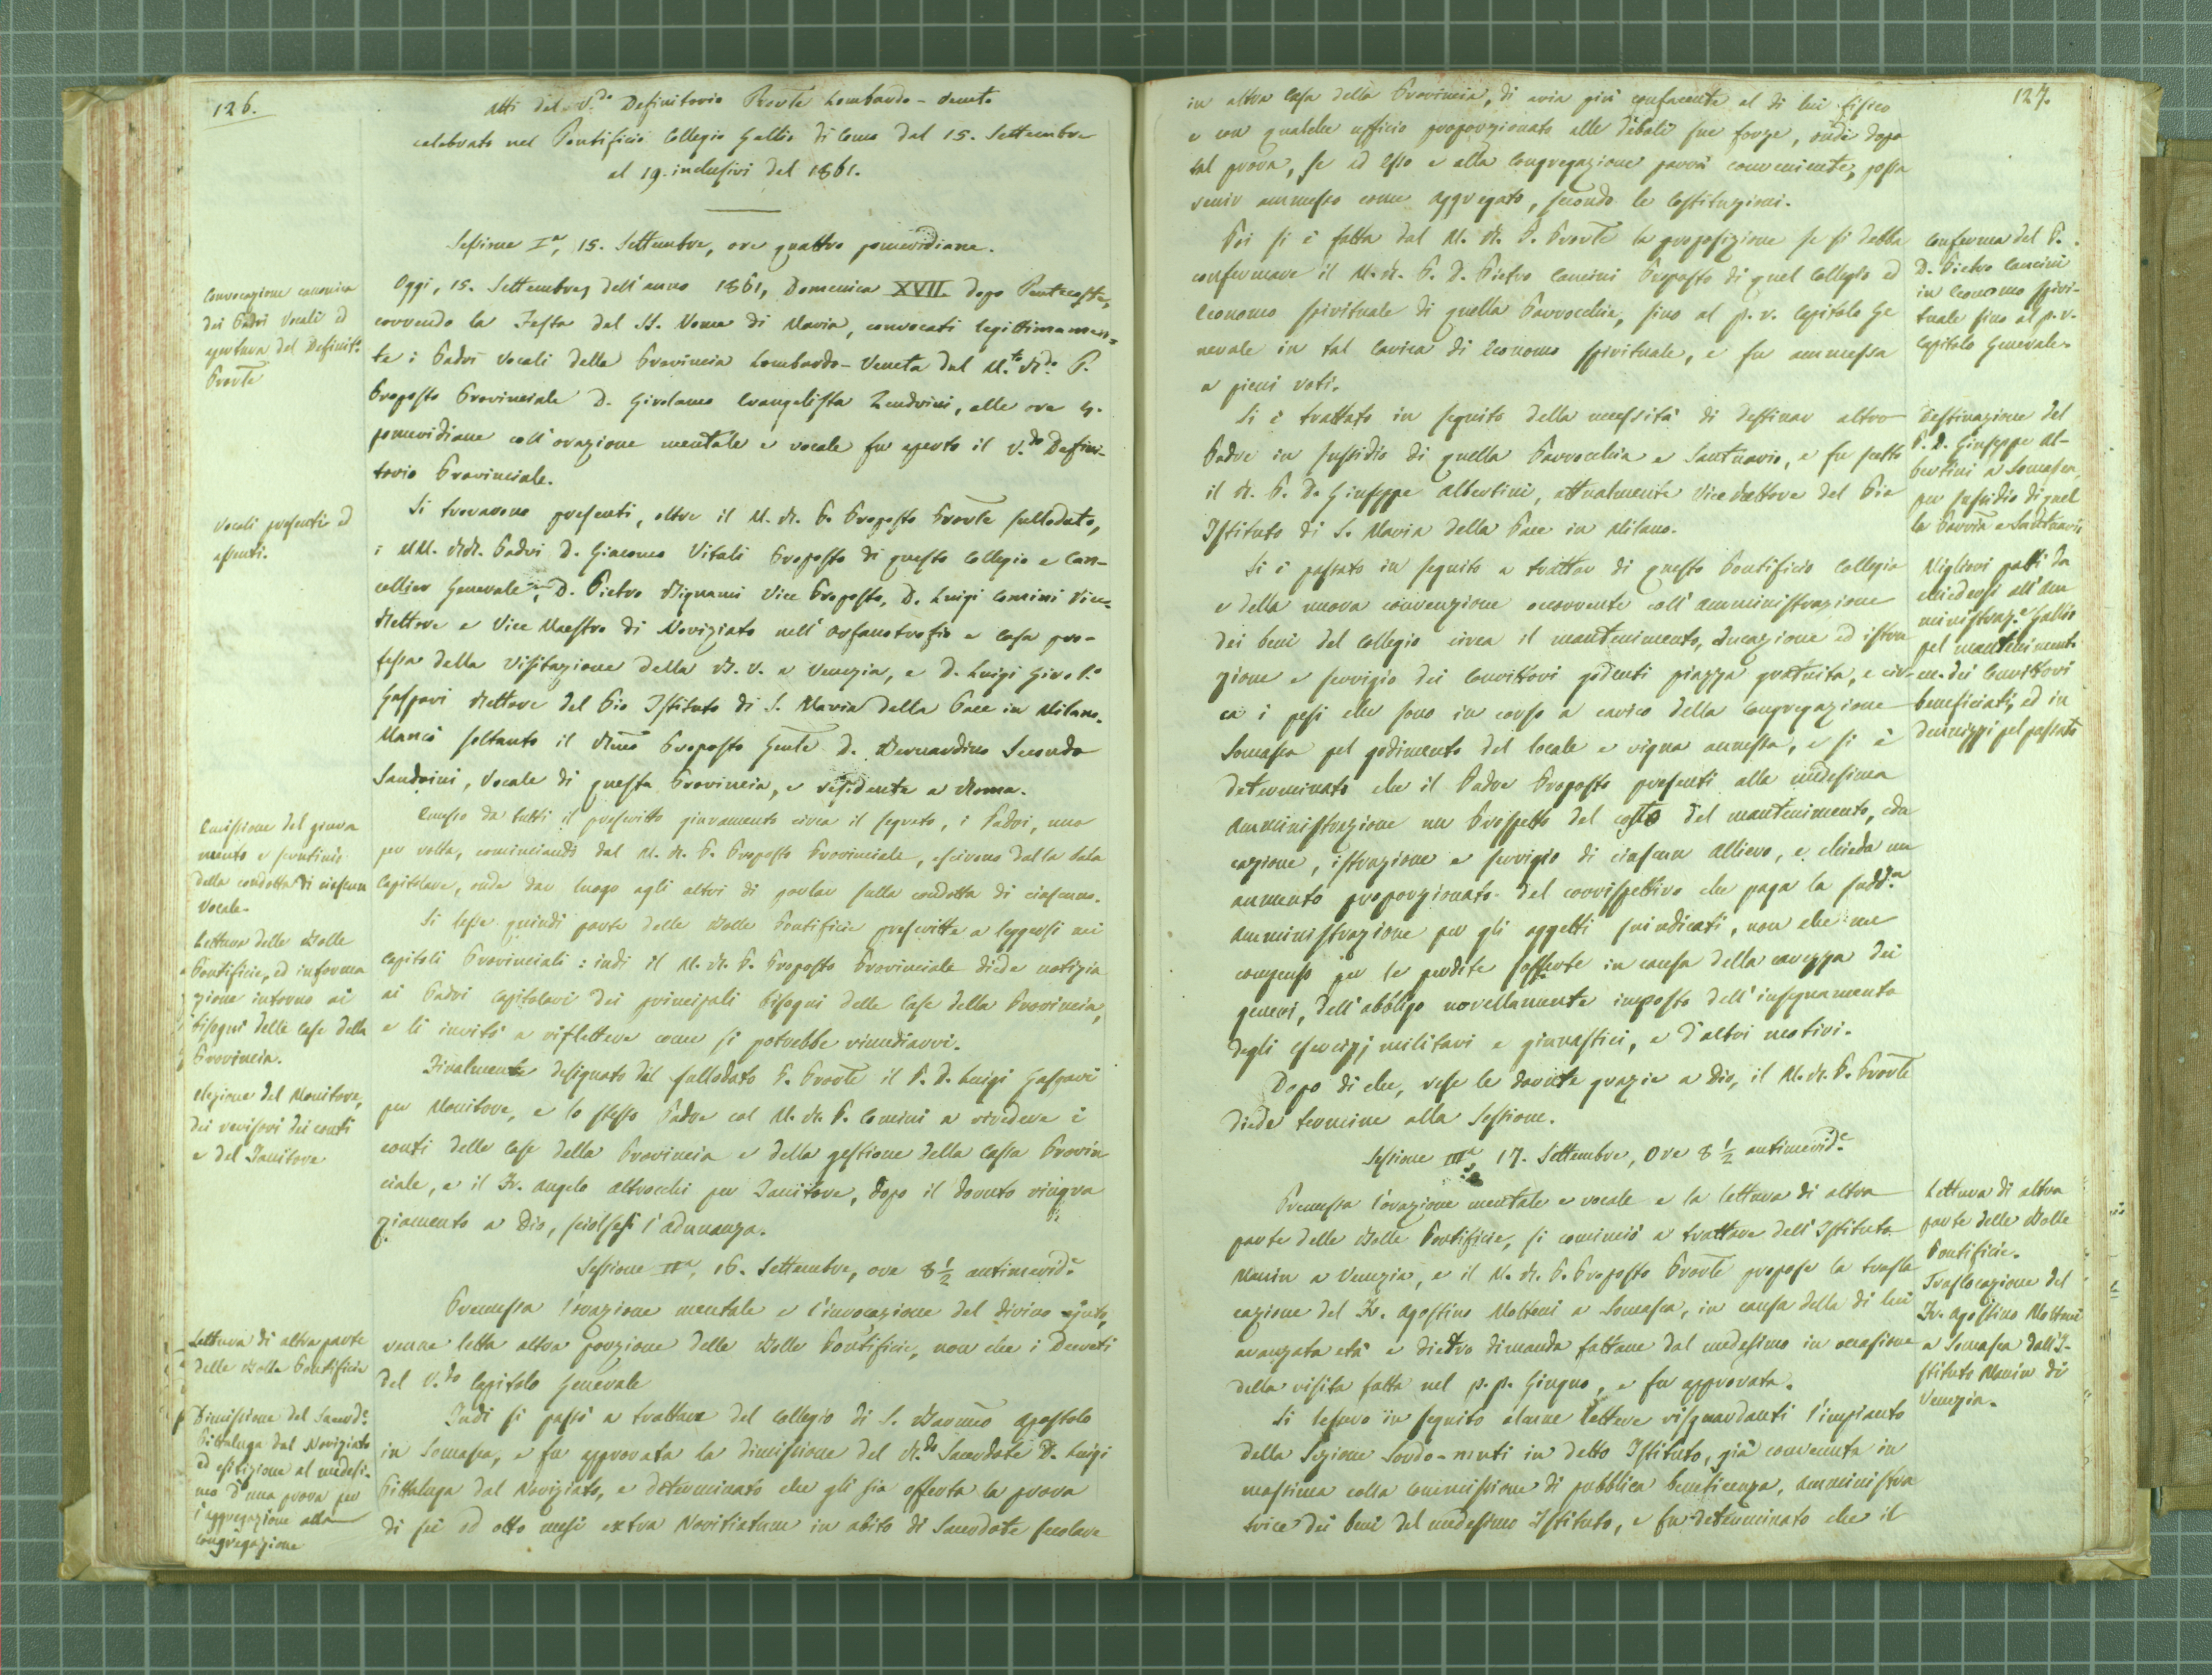 126.
Atti del V.do Definitorio Provle Lombardo-Veneto
celebrato nel Pontificio Collegio Gallio di Como dal 15. Settembre
al 19. inclusivi del 1861.
Sessione Ia, 15. Settembre, ore quattro pomeridiane.
Convocazione canonica
dei Padri Vocali ed
apertura del Definit.o
Provle
Oggi, 15. Settembre, dell'anno 1861, Domenica XVII. dopo Pentecoste,
correndo la Festa del SS. Nome di Maria, convocati legittimamen=
te i Padri Vocali della Provincia Lombardo-Veneta dal M.to R.do P.
Proposto Provinciale D. Girolamo Evangelista Zendrini, alle ore 4.
pomeridiane coll'orazione mentale e vocale fu aperto il V.do Defini-
torio Provinciale.
Vocali presenti ed
assenti.
Si trovarono presenti, oltre il M. R. P. Proposto Provle sullodato,
i MM. RR. Padri D. Giacomo Vitali Proposto di questo Collegio e Can-
cellier Generale, D. Pietro Rignami Vice Proposto, D. Luigi Comini Vice=
Rettore e Vice Maestro di Noviziato nell'Orfanotrofio e Casa pro-
fessa della Visitazione della B. V. a Venezia, e D. Luigi Girol.o
Gaspari Rettore del Pio Istituto di S. Maria della Pace in Milano.
Mancò soltanto il Rmo Proposto Genle D. Bernardino Secondo
Sandrini, Vocale di questa Provincia, e residente a Roma.
Emissione del giura
mento e scrutinio
della condotta di ciascun
Vocale.
Emesso da tutti il prescritto giuramento circa il segreto, i Padri, uno
per volta, cominciando dal M. R. P. Proposto Provinciale, escirono dalla Sala
Capitolare, onde dar luogo agli altri di parlar sulla condotta di ciascuno.
Lettura delle Bolle
Pontificie, ed informa
zione intorno ai
bisogni delle Case della
Provincia.
Si lesse quindi parte delle Bolle Pontificie prescritte a leggersi nei
Capitoli Provinciali: indi il M. R. P. Proposto Provinciale diede notizia
ai Padri Capitolari dei principali bisogni delle Case della Provincia,
e li invitò a riflettere come si potrebbe rimediarvi.
Elezione del Monitore,
dei revisori dei conti
e del Janitore
Finalmente designato dal sullodato P. Provle il P. D. Luigi Gaspari
per Monitore, e lo stesso Padre col M. R. P. Comini a rivedere i
conti delle Case della Provincia e della gestione della Cassa Provin
ciale, e il Fr. Angelo Altrocchi per Janitore, dopo il dovuto ringra
ziamento a Dio, sciolsesi l'adunanza.
Sessione IIa, 16. Settembre, ore 8 1/2 antimerid.e
Lettura di altra parte
delle Bolle Pontificie
Premessa l'orazione mentale e l'invocazione del divino ajuto,
venne letta altra porzione delle Bolle Pontificie, non che i Decreti
del V.do Capitolo Generale
Dimissione del Sacerd.e
Pittaluga dal Noviziato
ed esibizione al medesi-
mo d'una prova per
l'aggregazione alla
Congregazione
Indi si passò a trattare del Collegio di S. Bartmeo Apostolo
in Somasca, e fu approvata la dimissione del R.do Sacerdote D. Luigi
Pittaluga dal Noviziato, e determinato che gli sia offerta la prova
di sei od otto mesi extra Novitiatum in abito di Sacerdote secolare
127.
in altra Casa della Provincia, di aria più confacente al di lui fisico
e con qualche ufficio proporzionato alle deboli sue forze, onde dopo
tal prova, se ad esso e alla Congregazione parrà conveniente, possa
venir ammesso come Aggregato, secondo le Costituzioni.
Conferma del P.
D. Pietro Cancini
in Economo spiri-
tuale fino al p. v.
Capitolo Generale.
Poi si è fatta dal M. R. P. Provle la proposizione se si debba
confermare il M. R. P. D. Pietro Cancini Proposto di quel Collegio ed
Economo spirituale di quella Parrocchia, fino al p. v. Capitolo Ge
nerale in tal carica di Economo spirituale, e fu ammessa
a pieni voti.
Destinazione del
P. D. Giuseppe Al-
bertini a Somasca,
per sussidio di quel
la Parrchia e Santuario
Si è trattato in seguito della necessità di destinar altro
Padre in sussidio di quella Parrocchia e Santuario, e fu scelto
il R. P. D. Giuseppe Albertini, attualmente Vice Rettore del Pio
Istituto di S. Maria della Pace in Milano.
Migliori patti da
chiedersi all'Am
ministraz.e Gallio
pel mantenimento
ec. dei Convittori
beneficiati, ed in
dennizzi pel passato
Si è passato in seguito a trattar di questo Pontificio Collegio
e della nuova convenzione occorrente coll'Amministrazione
dei beni del Collegio circa il mantenimento, educazione ed istru
zione e servigio dei Convittori godenti piazza gratuita, e cir-
ca i pesi che sono in corso a carico della Congregazione
Somasca pel godimento del locale e vigna annessa, e si è
determinato che il Padre Proposto presenti alla medesima
Amministrazione un Prospetto del costo del mantenimento, edu
cazione, istruzione e servigio di ciascun Allievo, e chieda un
aumento proporzionato del corrispettivo che paga la sudd.a
Amministrazione per gli oggetti suindicati, non che un
compenso per le perdite sofferte in causa della carezza dei
generi, dell'obbligo novellamente imposto dell'insegnamento
degli esercizj militari e ginnastici, e d'altri motivi.
Dopo di che, rese le dovute grazie a Dio, il M. R. P. Provle
diede termine alla Sessione.
Sessione IIIa, 17. Settembre, Ore 8 1/2 antimerid.e
Lettura di altra
parte delle Bolle
Pontificie.
Traslocazione del
Fr. Agostino Molteni
a Somasca dall'I-
stituto Manin di
Venezia.
Premessa l'orazione mentale e vocale e la lettura di altra
parte delle Bolle Pontificie, si cominciò a trattare dell'Istituto
Manin a Venezia, e il M. R. P. Proposto Provle propose la traslo
cazione del Fr. Agostino Molteni a Somasca, in causa della di lui
avanzata età e dietro dimanda fattane dal medesimo in occasione
della visita fatta nel p. p. Giugno, e fu approvata.
Si lessero in seguito alcune lettere risguardanti l'impianto
della Sezione Sordo-muti in detto Istituto, già convenuta in
massima colla Commissione di pubblica beneficenza, Amministra
trice dei beni del medesimo Istituto, e fu determinato che il